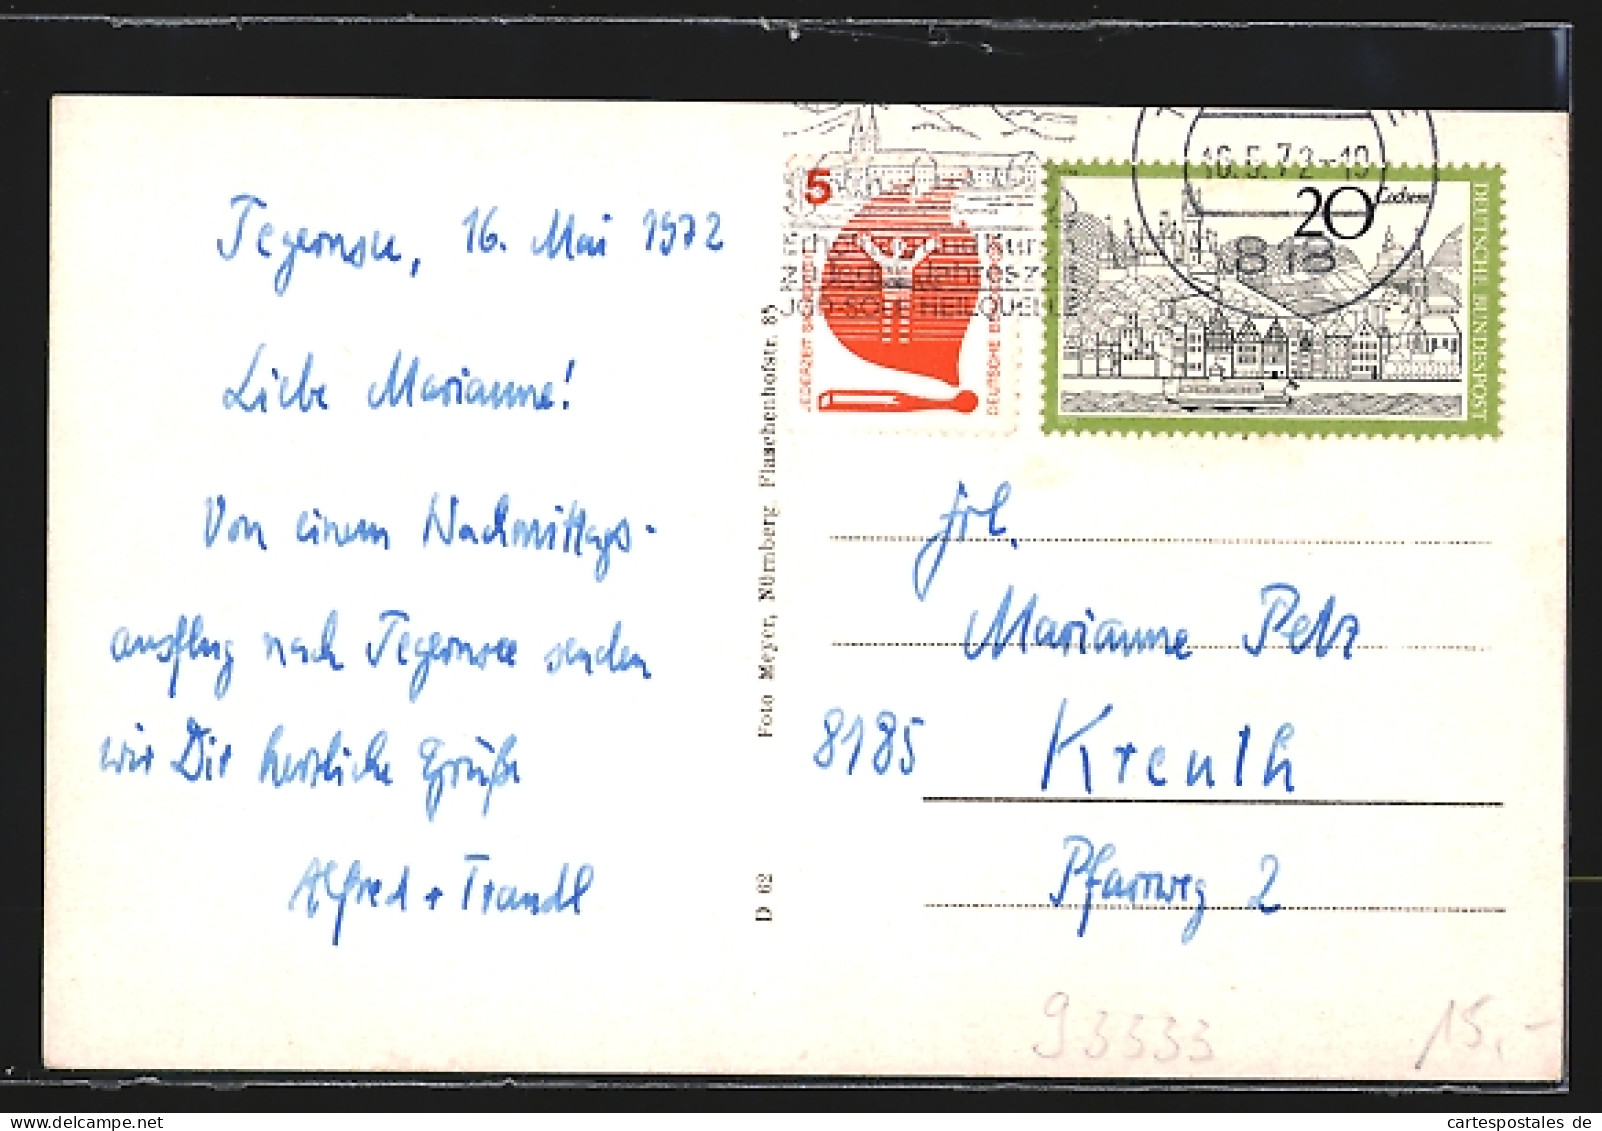 Tegernsee, 16. Mai 1972
Liebe Marianne!
Von einem Nachmittags-
ausflug nach Tegernsee senden
wir Dir herzliche Grüße
Alfred + Traudl
D 62 Foto Meyer, Nürnberg, Flaschenhofstr. 85
5
JEDERZEIT SICHERHEIT
DEUTSCHE BUNDESPOST
JOD-SOLE HEILQUELLE
16.5.72-19
818
20
Cochem
DEUTSCHE BUNDESPOST
Frl.
Marianne Pelz
8185 Kreuth
Pfarrweg 2
93333
15,-
cartespostales de